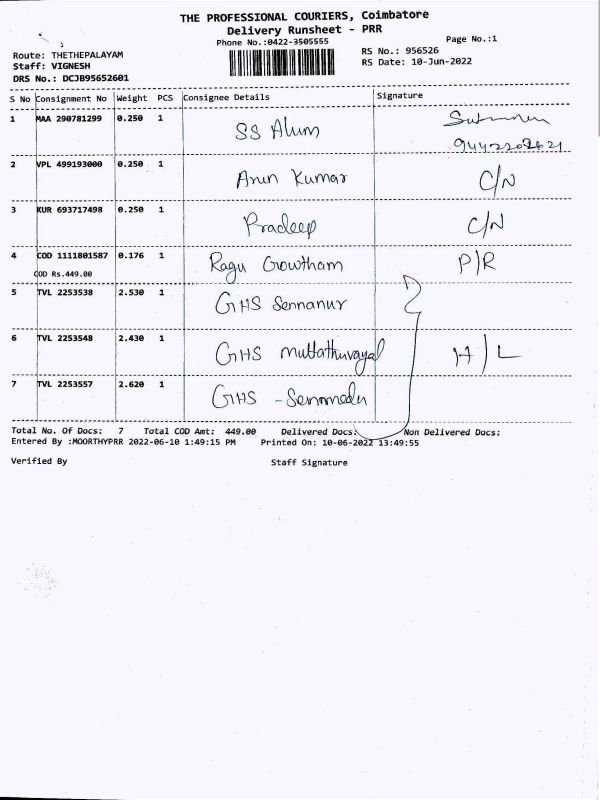 THE PROFESSIONAL COURIERS, Coimbatore
Delivery Runsheet - PRR
Phone No.:0422-3505555 Page No.:1
Route: THETHEPALAYAM RS No.: 956526
Staff: VIGNESH RS Date: 10-Jun-2022
DRS No.: DCJB95652601
S No Consignment No Weight PCS Consignee Details Signature
1 MAA 290781299 0.250 1 SS Alum
2 VPL 499193000 0.250 1 Arun Kumar C/N
3 KUR 693717498 0.250 1 Pradeep C/N
4 COD 1111801587 0.176 1 Ragu Gowtham P/R
COD Rs.449.00
5 TVL 2253538 2.530 1 GHS Sennanur
6 TVL 2253548 2.430 1 GHS Muttathuvayal H/L
7 TVL 2253557 2.620 1 GHS - Semmedu
Total No. Of Docs: 7 Total COD Amt: 449.00 Delivered Docs: Non Delivered Docs:
Entered By :MOORTHYPRR 2022-06-10 1:49:15 PM Printed On: 10-06-2022 13:49:55
Verified By Staff Signature